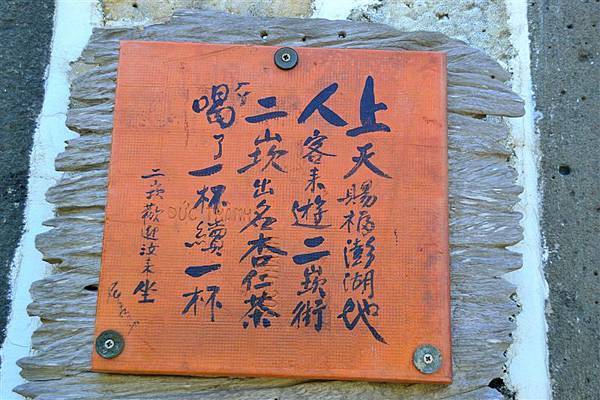 上天賜福澎湖地
人客来遊二崁街
二崁出名杏仁茶
喝了一杯續一杯
二崁歡迎汝来坐